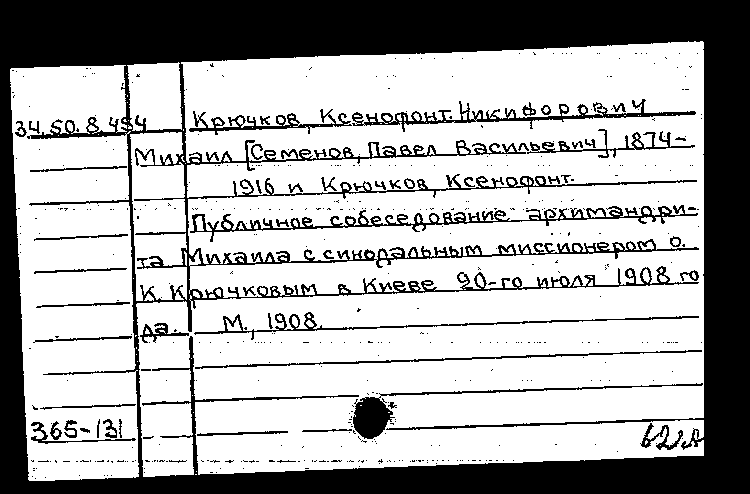 34.50.8.494 Крючков, Ксенофонт Никифорович
Михаил [Семенов, Павел Васильевич], 1874-
1916 и Крючков, Ксенофонт.
Публичное собеседование архимандри-
та Михаила с синодальным миссионером о.
К. Крючковым в Киеве 20-го июля 1908 го
да. М., 1908.
365-131